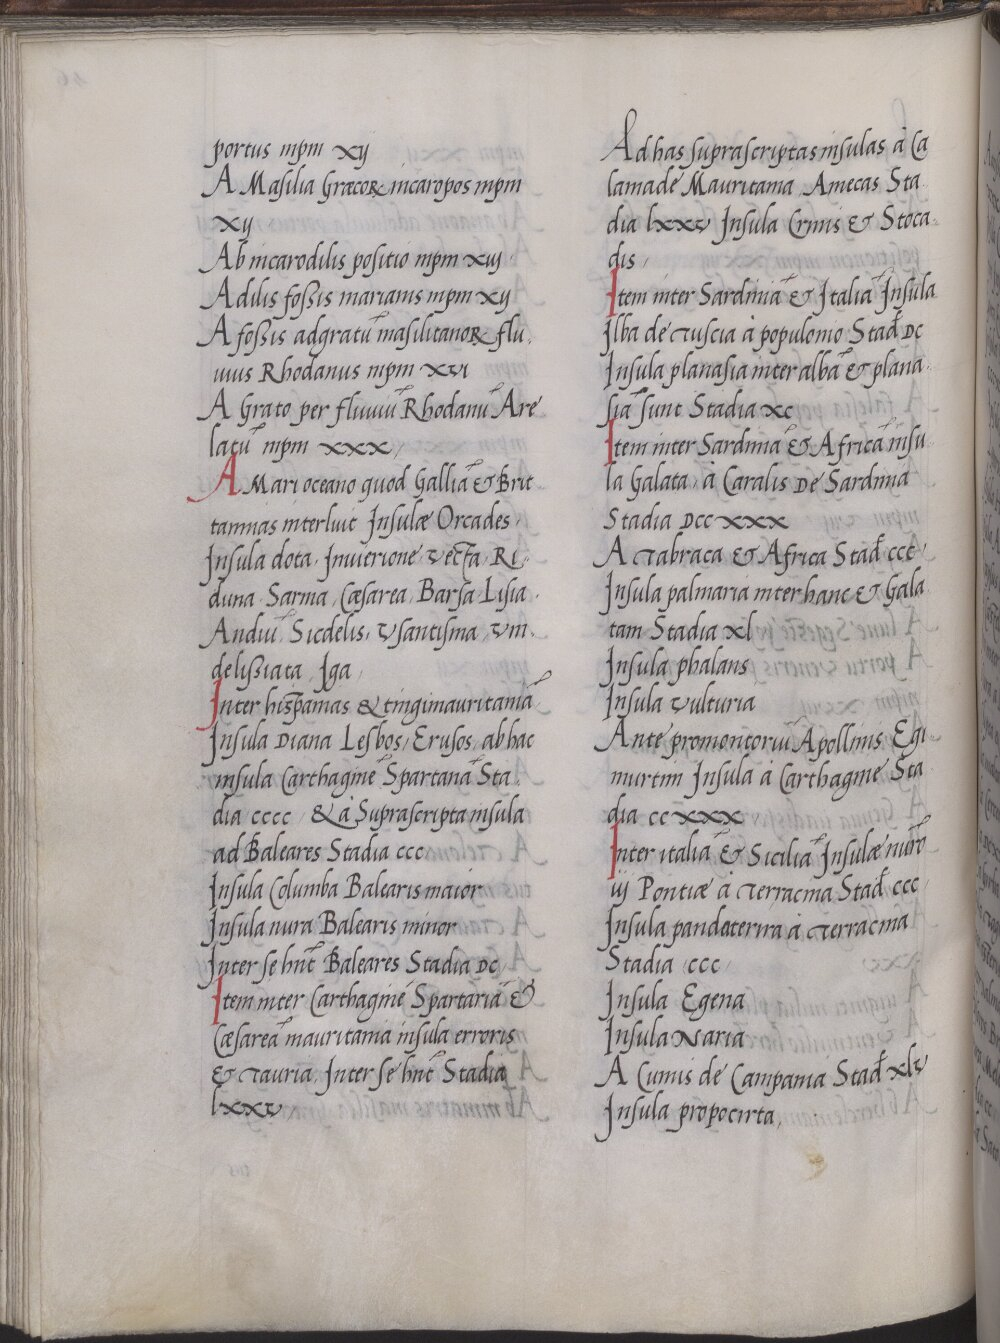 portus mpm xij
A Masilia Græcoꝝ incaropos mpm
xij
Ab incarodilis positio mpm xiij.
A dilis fossis marianis mpm xij
A fossis adgratū masilitanoꝝ flu,
uius Rhodanus mpm xvi
A Grato per fluuiū Rhodanū Are
latū mpm xxx,
A Mari oceano quod Galliā & Brit
tannias interluit Insulæ Orcades,
Insula dota, Inuerione vecta, Ri,
duna, Sarma, Cæsarea, Barsa, Lisia,
Andiū, Sicdelis, vsantisma, vin,
delissiata, Iga,
Inter hispanias & tingimauritaniā
Insula Diana Lesbos, Erusos, ab hac
insula Carthaginē Spartanā Sta
dia cccc, & à Suprascripta insula
ad Baleares Stadia ccc,
Insula Columba Balearis maior
Insula nura Balearis minor
Inter se hnt̄ Baleares Stadia DC,
Item inter Carthaginē Spartariā &
Cæsareā mauritania insula erroris
& Tauria, Inter se hnt̄ Stadia
lxxv
Ad has suprascriptas insulas à Ca
lama de Mauritania, Amecas Sta
dia lxxv Insula Crinis & Stoca
dis,
Item inter Sardiniā & Italiā Insula
Ilba de Tuscia à populonio Stad̄ DC
Insula planasia inter albā & plana
siā sunt Stadia xc
Item inter Sardiniā & Africā insu
la Galata, à Caralis De Sardinia
Stadia DCCxxx
A Tabraca & Africa Stad̄ ccc,
Insula palmaria inter hanc & Gala
tam Stadia xl
Insula phalans
Insula vulturia
Ante promontoriū Apollinis Egi
murtim Insula à Carthagine Sta
dia ccxxx
Inter italiā & Siciliā Insulæ nuēro
iij Pontiæ à Terracina Stad̄ ccc,
Insula pandaterira à Terracina
Stadia ccc,
Insula Egena
Insula Naria
A Cumis de Campania Stad̄ xlv
Insula propocirta,